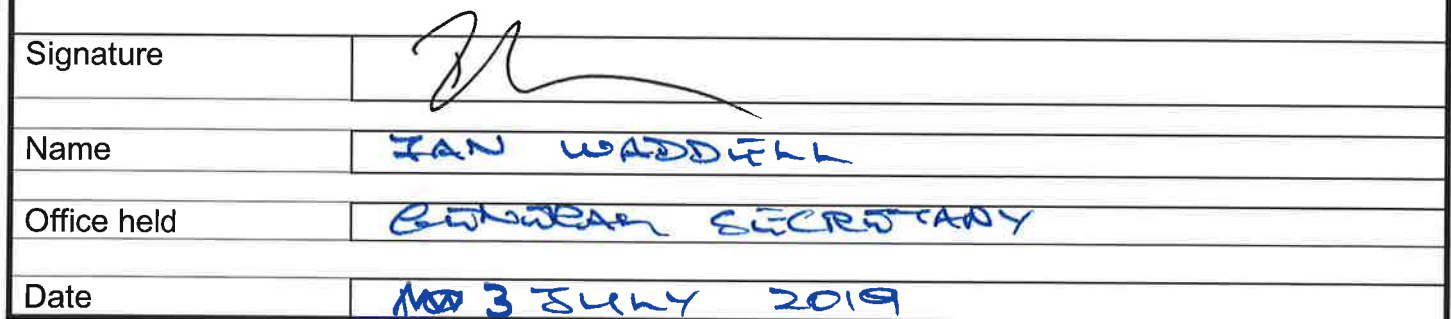 Signature
Name IAN WADDELL
Office held GENERAL SECRETARY
Date 3 JULY 2019